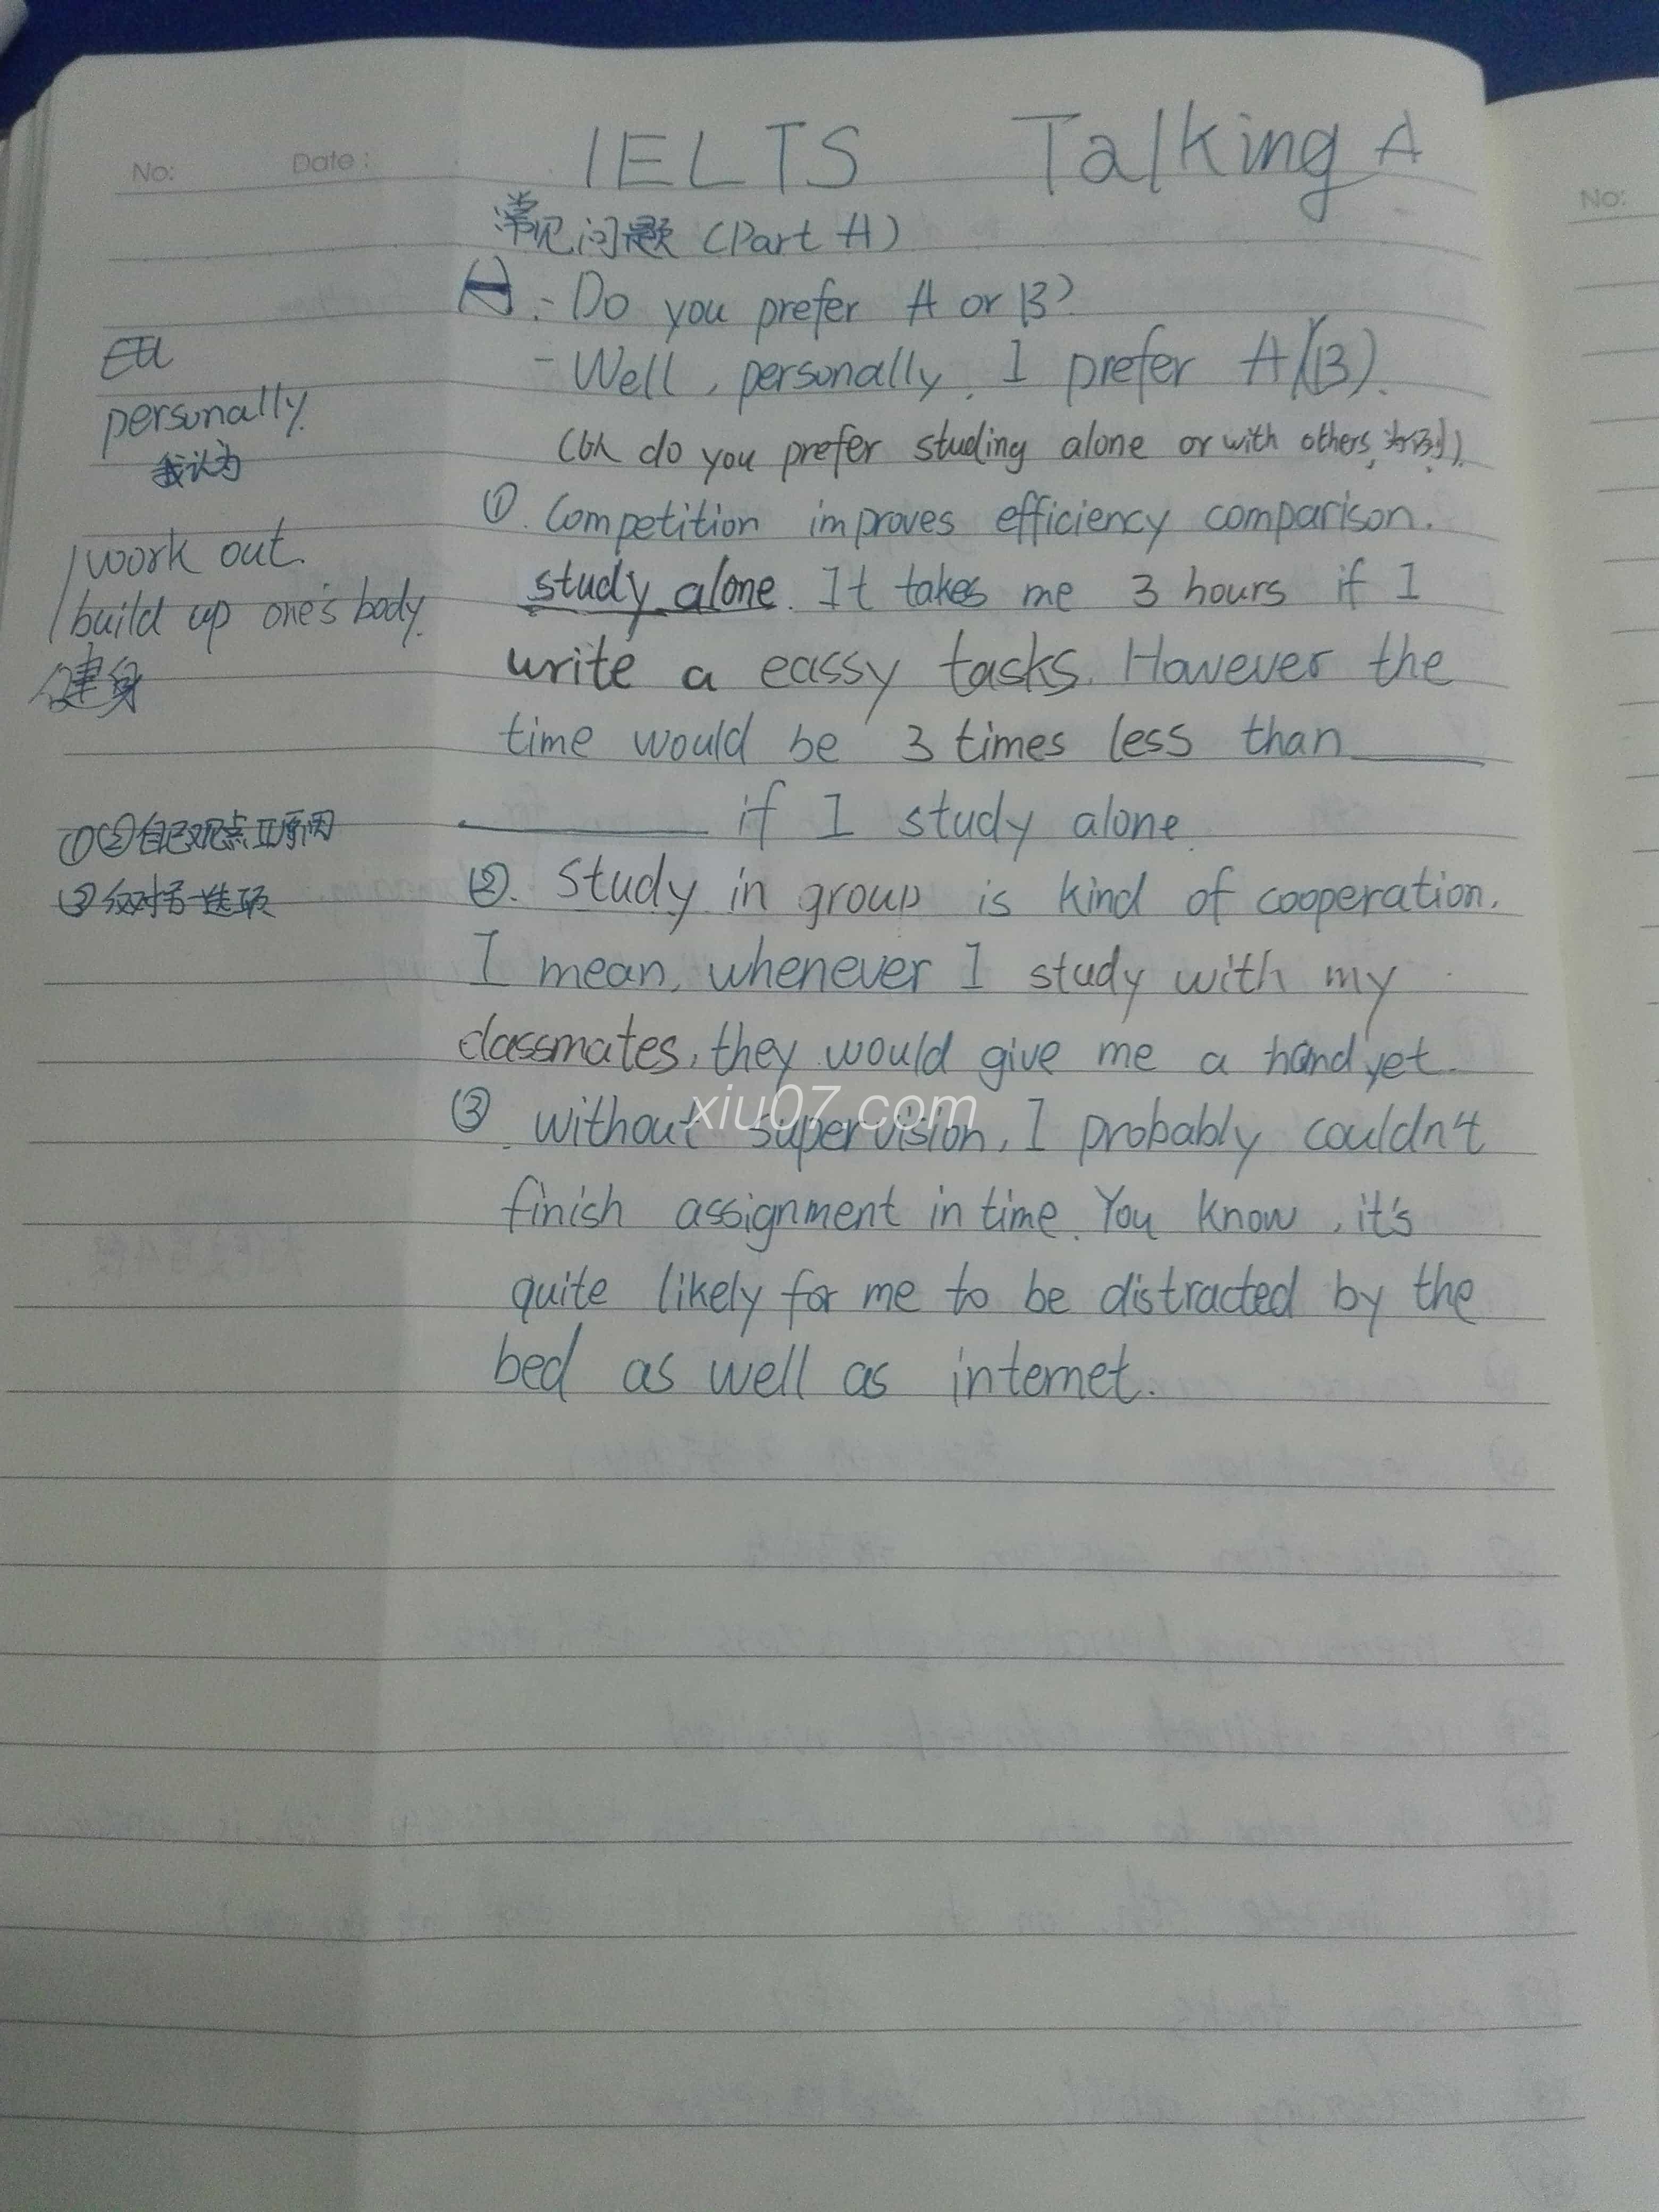 No: Date: IELTS Talking A
常见问题 (Part A)
(一). - Do you prefer A or B?
- Well, personally, I prefer A/(B).
(以 do you prefer studing alone or with others, 为例).
① Competition improves efficiency comparison.
study alone. It takes me 3 hours if I
write a eassy tasks. However the
time would be 3 times less than
if I study alone.
②. Study in group is kind of cooperation.
I mean, whenever I study with my
classmates, they would give me a hand yet.
③. without supervision, I probably couldn't
finish assignment in time. You know, it's
quite likely for me to be distracted by the
bed as well as internet.
personally.
我认为
work out.
build up one's body.
健身
①②自己观点及原因
③反对另一选项
No:
xiu07.com